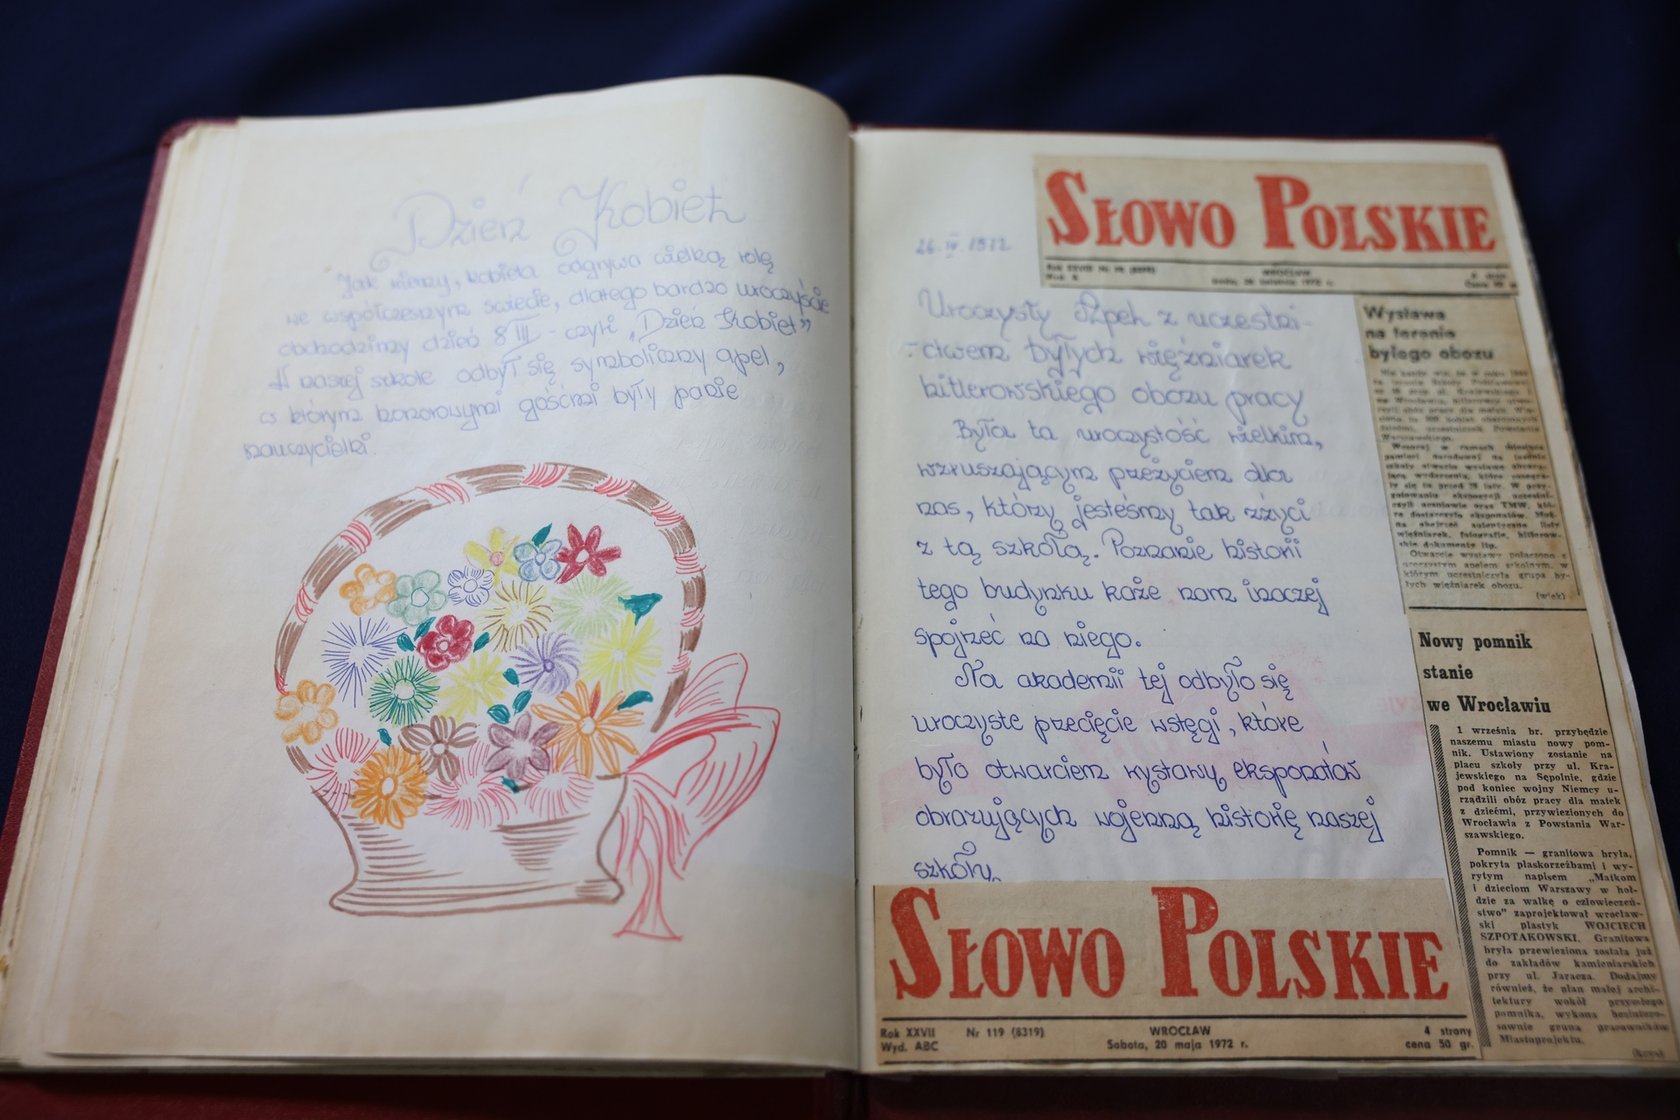 Dzień Kobiet
Jak wiemy, kobieta odgrywa wielką rolę
we współczesnym świecie, dlatego bardzo uroczyście
obchodzimy dzień 8 III - czyli „Dzień Kobiet”
W naszej szkole odbył się symboliczny apel,
a którym honorowymi gośćmi były panie
nauczycielki.
SŁOWO POLSKIE
WROCŁAW
26. IV. 1972
Uroczysty Apel z uczestni-
-ctwem byłych więźniarek
hitlerowskiego obozu pracy
Była ta uroczystość wielkim,
wzruszającym przeżyciem dla
nas, którzy jesteśmy tak zżyci
z tą szkołą. Poznanie historii
tego budynku każe nam inaczej
spojrzeć na niego.
Na akademii tej odbyło się
uroczyste przecięcie wstęgi, które
było otwarciem wystawy eksponatów
obrazujących wojenną historię naszej
szkoły.
Wystawa
na terenie
byłego obozu
Otwarcie wystawy połączono z
uroczystym apelem szkolnym, w
którym uczestniczyła grupa by-
łych więźniarek obozu.
(wiek)
Nowy pomnik
stanie
we Wrocławiu
1 września br. przybędzie
naszemu miastu nowy pom-
nik. Ustawiony zostanie na
placu szkoły przy ul. Kra-
jewskiego na Sępolnie, gdzie
pod koniec wojny Niemcy u-
rządzili obóz pracy dla matek
z dziećmi, przywiezionych do
Wrocławia z Powstania War-
szawskiego.
Pomnik — granitowa bryła,
pokryta płaskorzeźbami i wy-
rytym napisem „Matkom
i dzieciom Warszawy w hoł-
dzie za walkę o człowieczeń-
stwo” zaprojektował wrocław-
ski plastyk WOJCIECH
SZPOTAKOWSKI. Granitowa
bryła przewieziona została już
do zakładów kamieniarskich
przy ul. Jaracza. Dodajmy
również, że plan małej archi-
tektury wokół przyszłego
pomnika, wykona bezintere-
sownie grupa pracowników
Miastoprojektu.
SŁOWO POLSKIE
Rok XXVII Nr 119 (8319) WROCŁAW 4 strony
Wyd. ABC Sobota, 20 maja 1972 r. cena 50 gr.